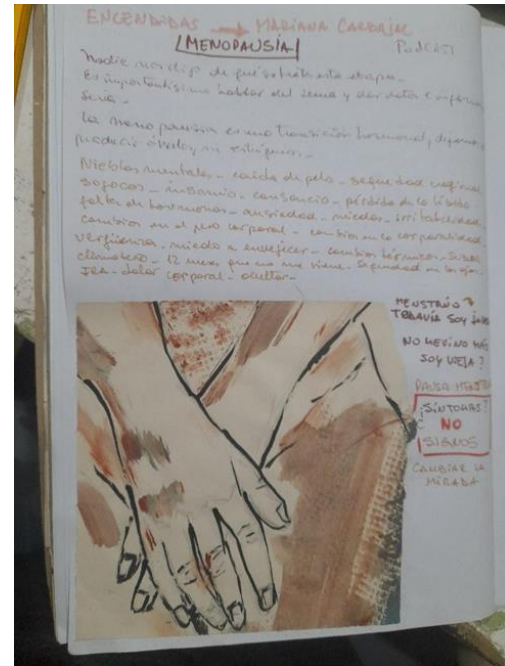 ENCENDIDAS → MARIANA CARBAJAL
MENOPAUSIA
PODCAST
Nadie nos dijo de qué se trata esta etapa-
Es importantísimo hablar del tema y dar datos e información
Seria-
La menopausia es una transición hormonal, dejamos
producir óvulos, estrógenos-
Nieblas mentales- caída de pelo- sequedad vaginal
sofocos- insomnio- cansancio- pérdida de la libido
falta de hormonas- ansiedad- miedos- irritabilidad
cambios en el peso corporal- cambios en la corporalidad
vergüenza- miedo a envejecer- cambios térmicos-
climaterio- 12 meses que no me viene- Sequedad en los ojos-
IRA- dolor corporal- ocultar-
MENSTRÚO
TODAVÍA SOY
NO ME VINO MÁS
SOY VIEJA?
PAUSA
¿SÍNTOMAS?
NO
SIGNOS
CAMBIAR LA
MIRADA